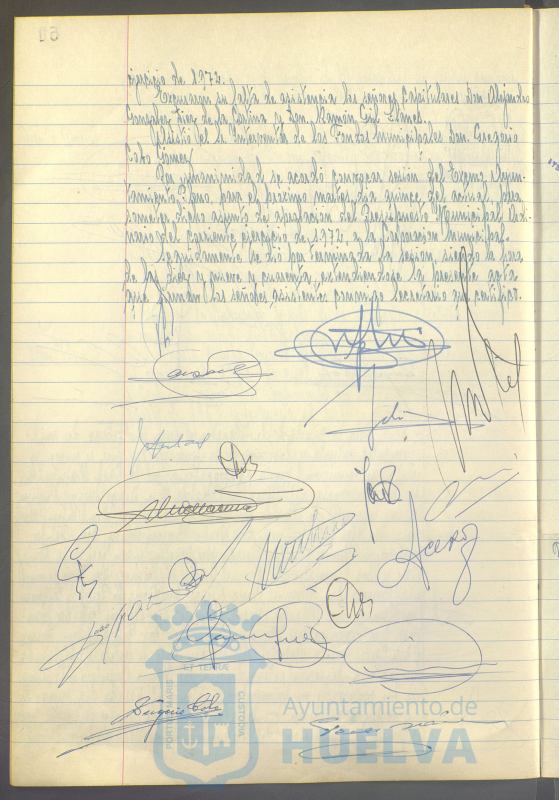 ejercicio de 1.972.
Excusaron su falta de asistencia los señores Capitulares Don Alejandro
González Díez de la Cortina y Don Ramón Gil Llanes.
Asistió el Sr. Interventor de los Fondos Municipales Don Gregorio
Cobo Gómez
Por unanimidad se acordó convocar sesión del Excmo. Ayun-
tamiento Pleno, para el próximo martes, día quince del actual, para
someter dicho asunto de aprobación del Presupuesto Municipal Ordi-
nario del corriente ejercicio de 1.972, a la Corporación Municipal.
Seguidamente se dio por terminada la sesión, siendo la hora
de las diez y nueve y cuarenta, extendiéndose la presente acta
que firman los señores asistentes conmigo Secretario que certifico.
Acero
Gregorio Cobo
PORTUS MARIS
ET TERRAE
CUSTODIA
Ayuntamiento de
HUELVA